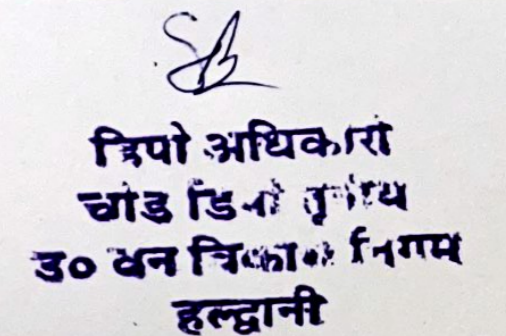 डिपो अधिकारी
चोड डिपो तृतीय
उ० वन विकास निगम
हल्द्वानी